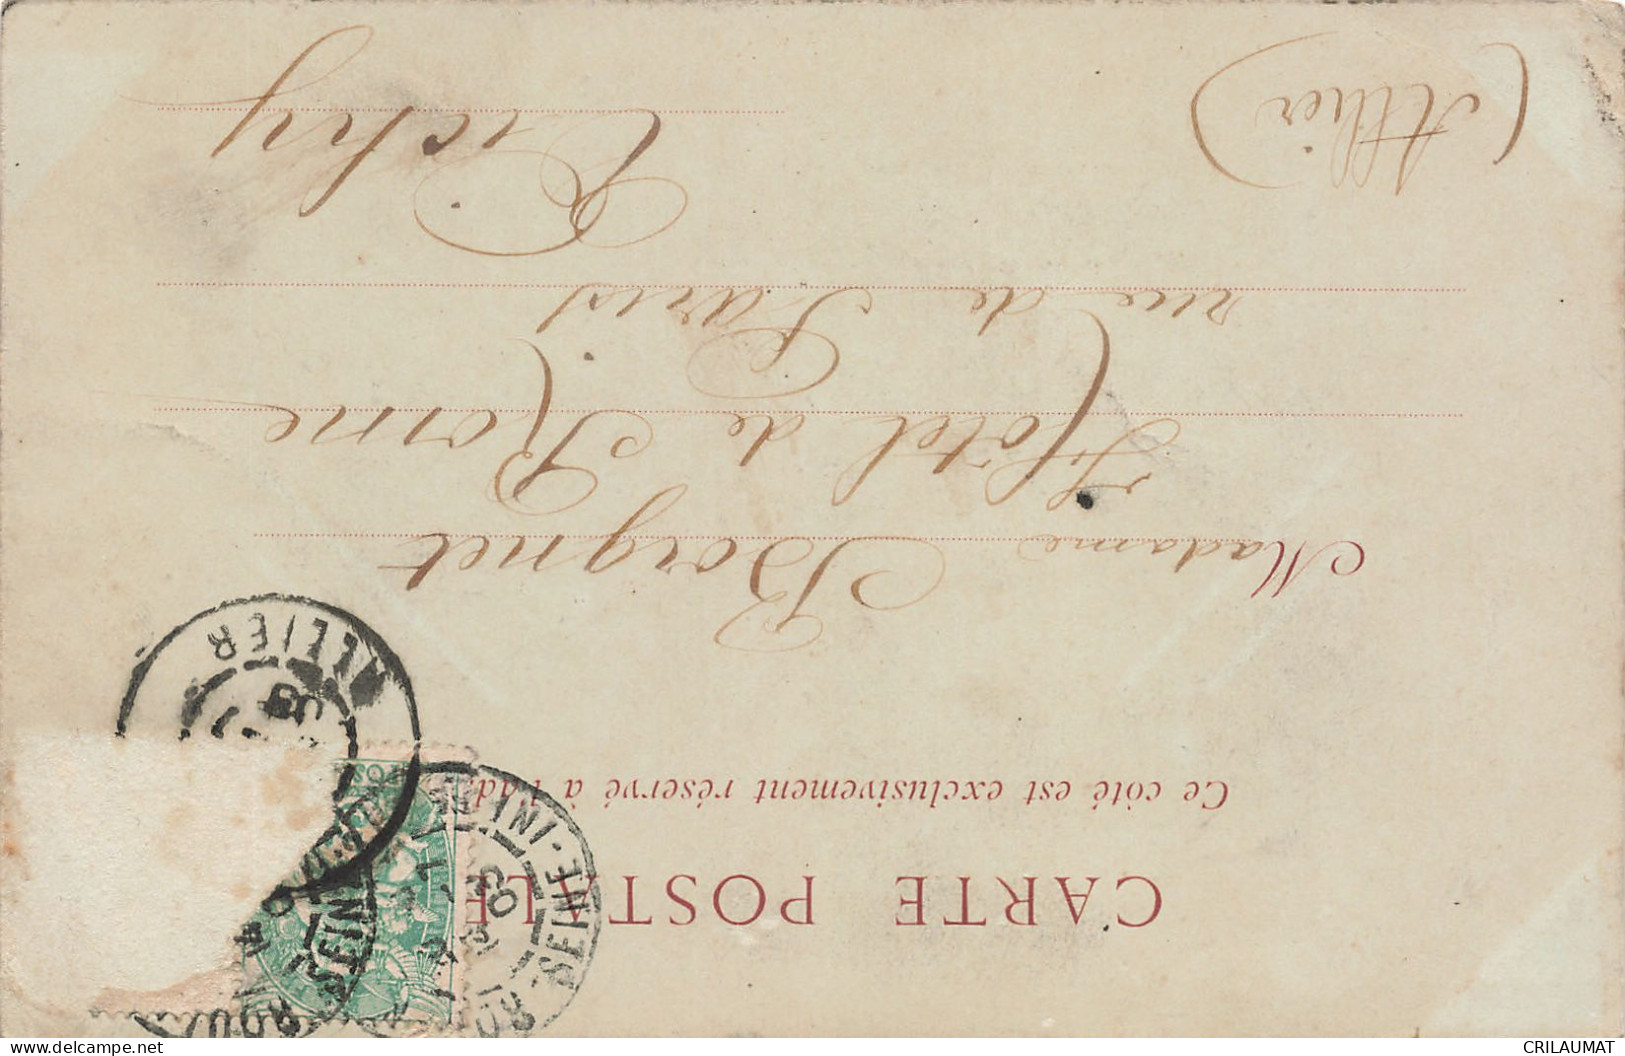 CARTE POSTALE
Ce côté est exclusivement réservé à l'ad
Madame Borgnet
Hôtel de Rome
rue de Paris
Vichy
(Allier)
ALLIER
SEINE
delcampe.net
CRILAUMAT